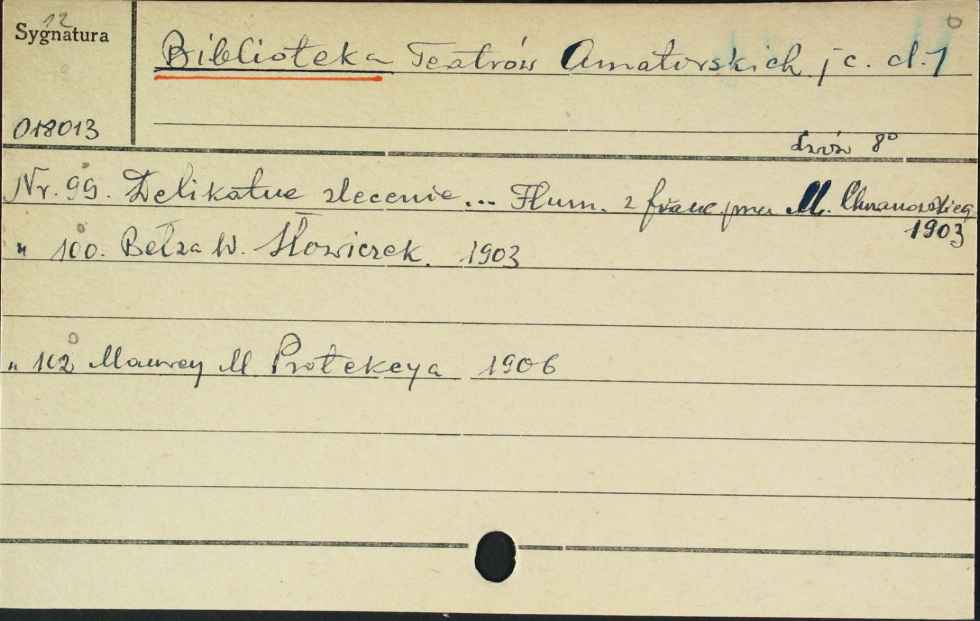 12
Sygnatura
Biblioteka Teatrów Amatorskich j c. d. 1
018013
Lwów 8°
Nr. 99. Delikatne zlecenie... Tłum. z franc. przez M. Chrzanowskiego
1903
" 100. Bełza W. Słowiczek. 1903
" 102 Maurey M Protekcya 1906